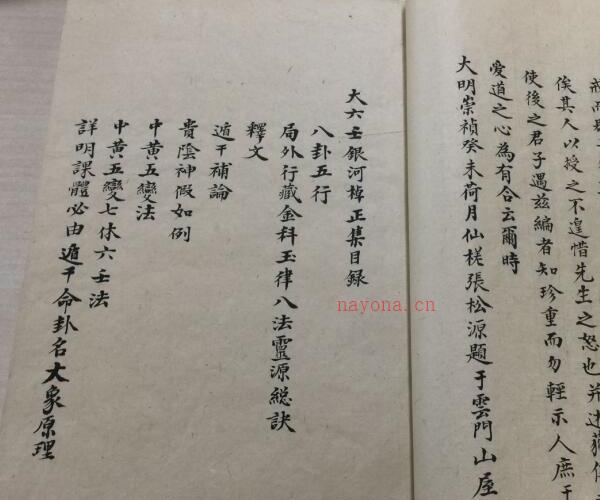 戒
俟其人以授之不遑惜先生之怒也并述
使後之君子遇茲編者知珍重而勿輕示人庶于
愛道之心為有合云爾時
大明崇禎癸未荷月仙槎張松源題于雲門山屋
大六壬銀河棹正集目録
八卦五行
局外行藏金科玉律八法靈源総訣
釋文
遁干補論
貴陰神假如例
中黄五變法
中黄五變七休六壬法
詳明課體必由遁干命卦名大象原理
nayona.cn